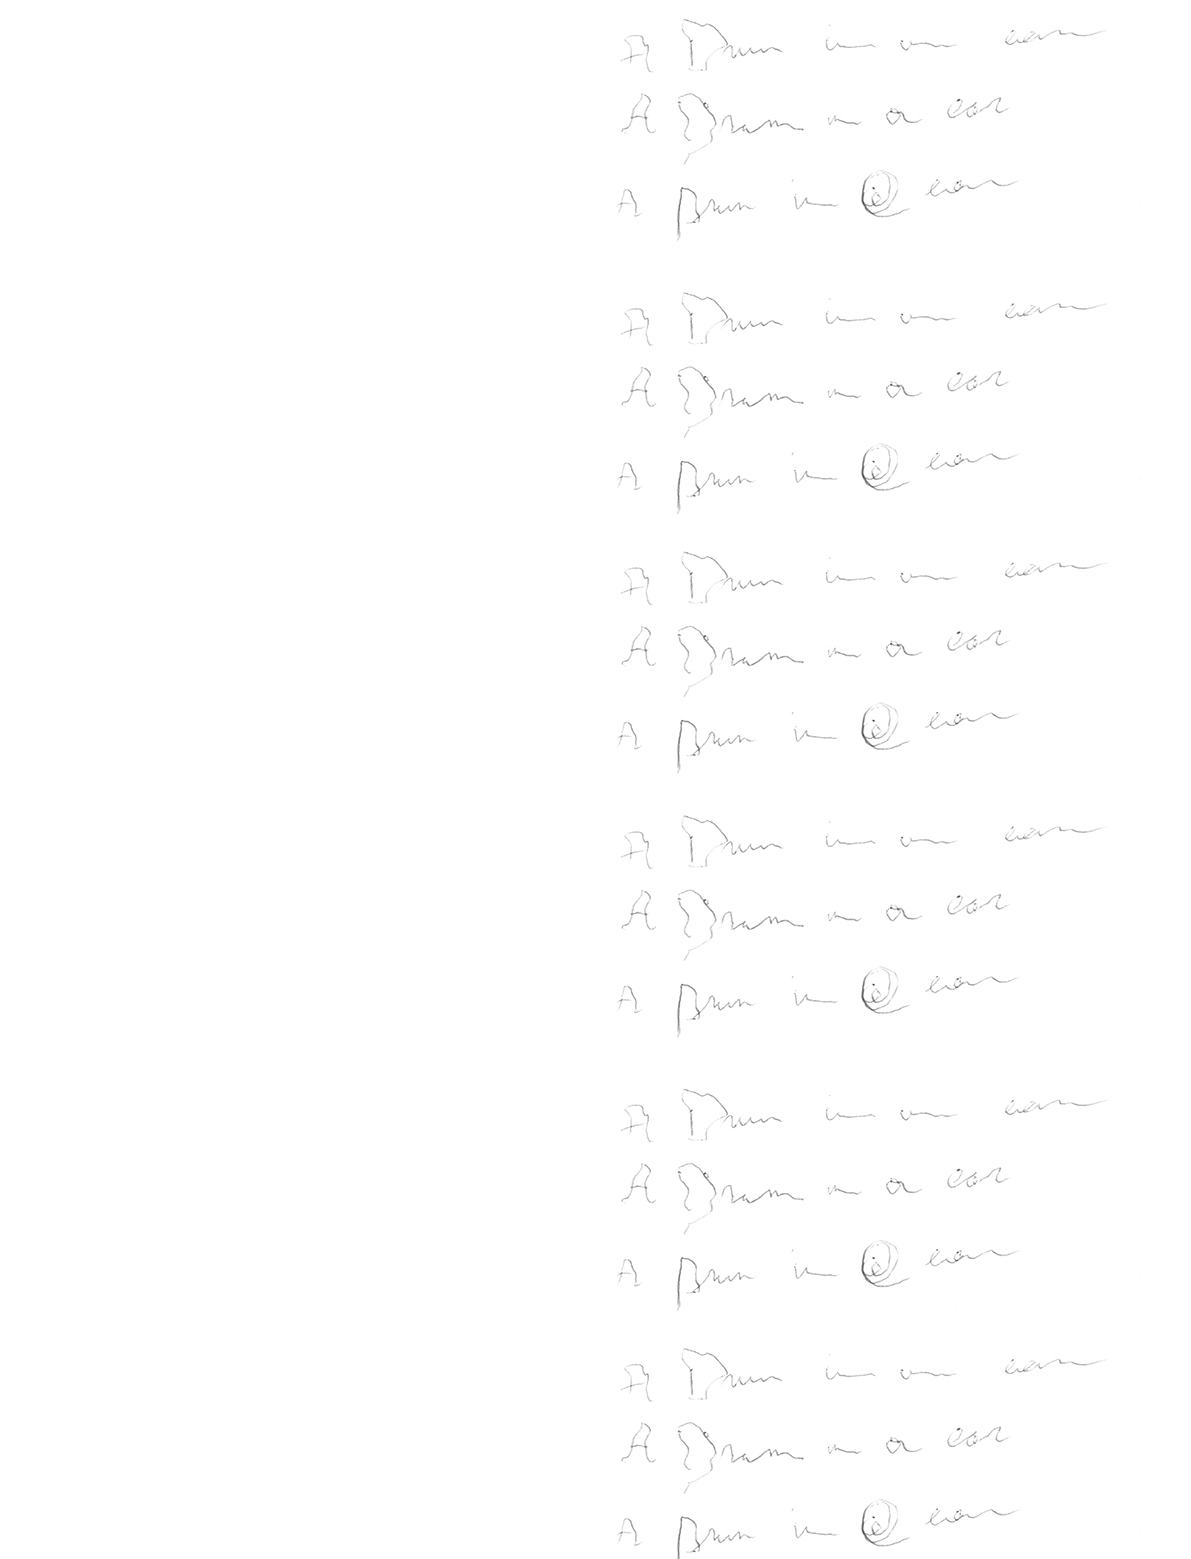 A Drum in an ear
A Drum in a ear
A Drum in @ ear
A Drum in an ear
A Drum in a ear
A Drum in @ ear
A Drum in an ear
A Drum in a ear
A Drum in @ ear
A Drum in an ear
A Drum in a ear
A Drum in @ ear
A Drum in an ear
A Drum in a ear
A Drum in @ ear
A Drum in an ear
A Drum in a ear
A Drum in @ ear